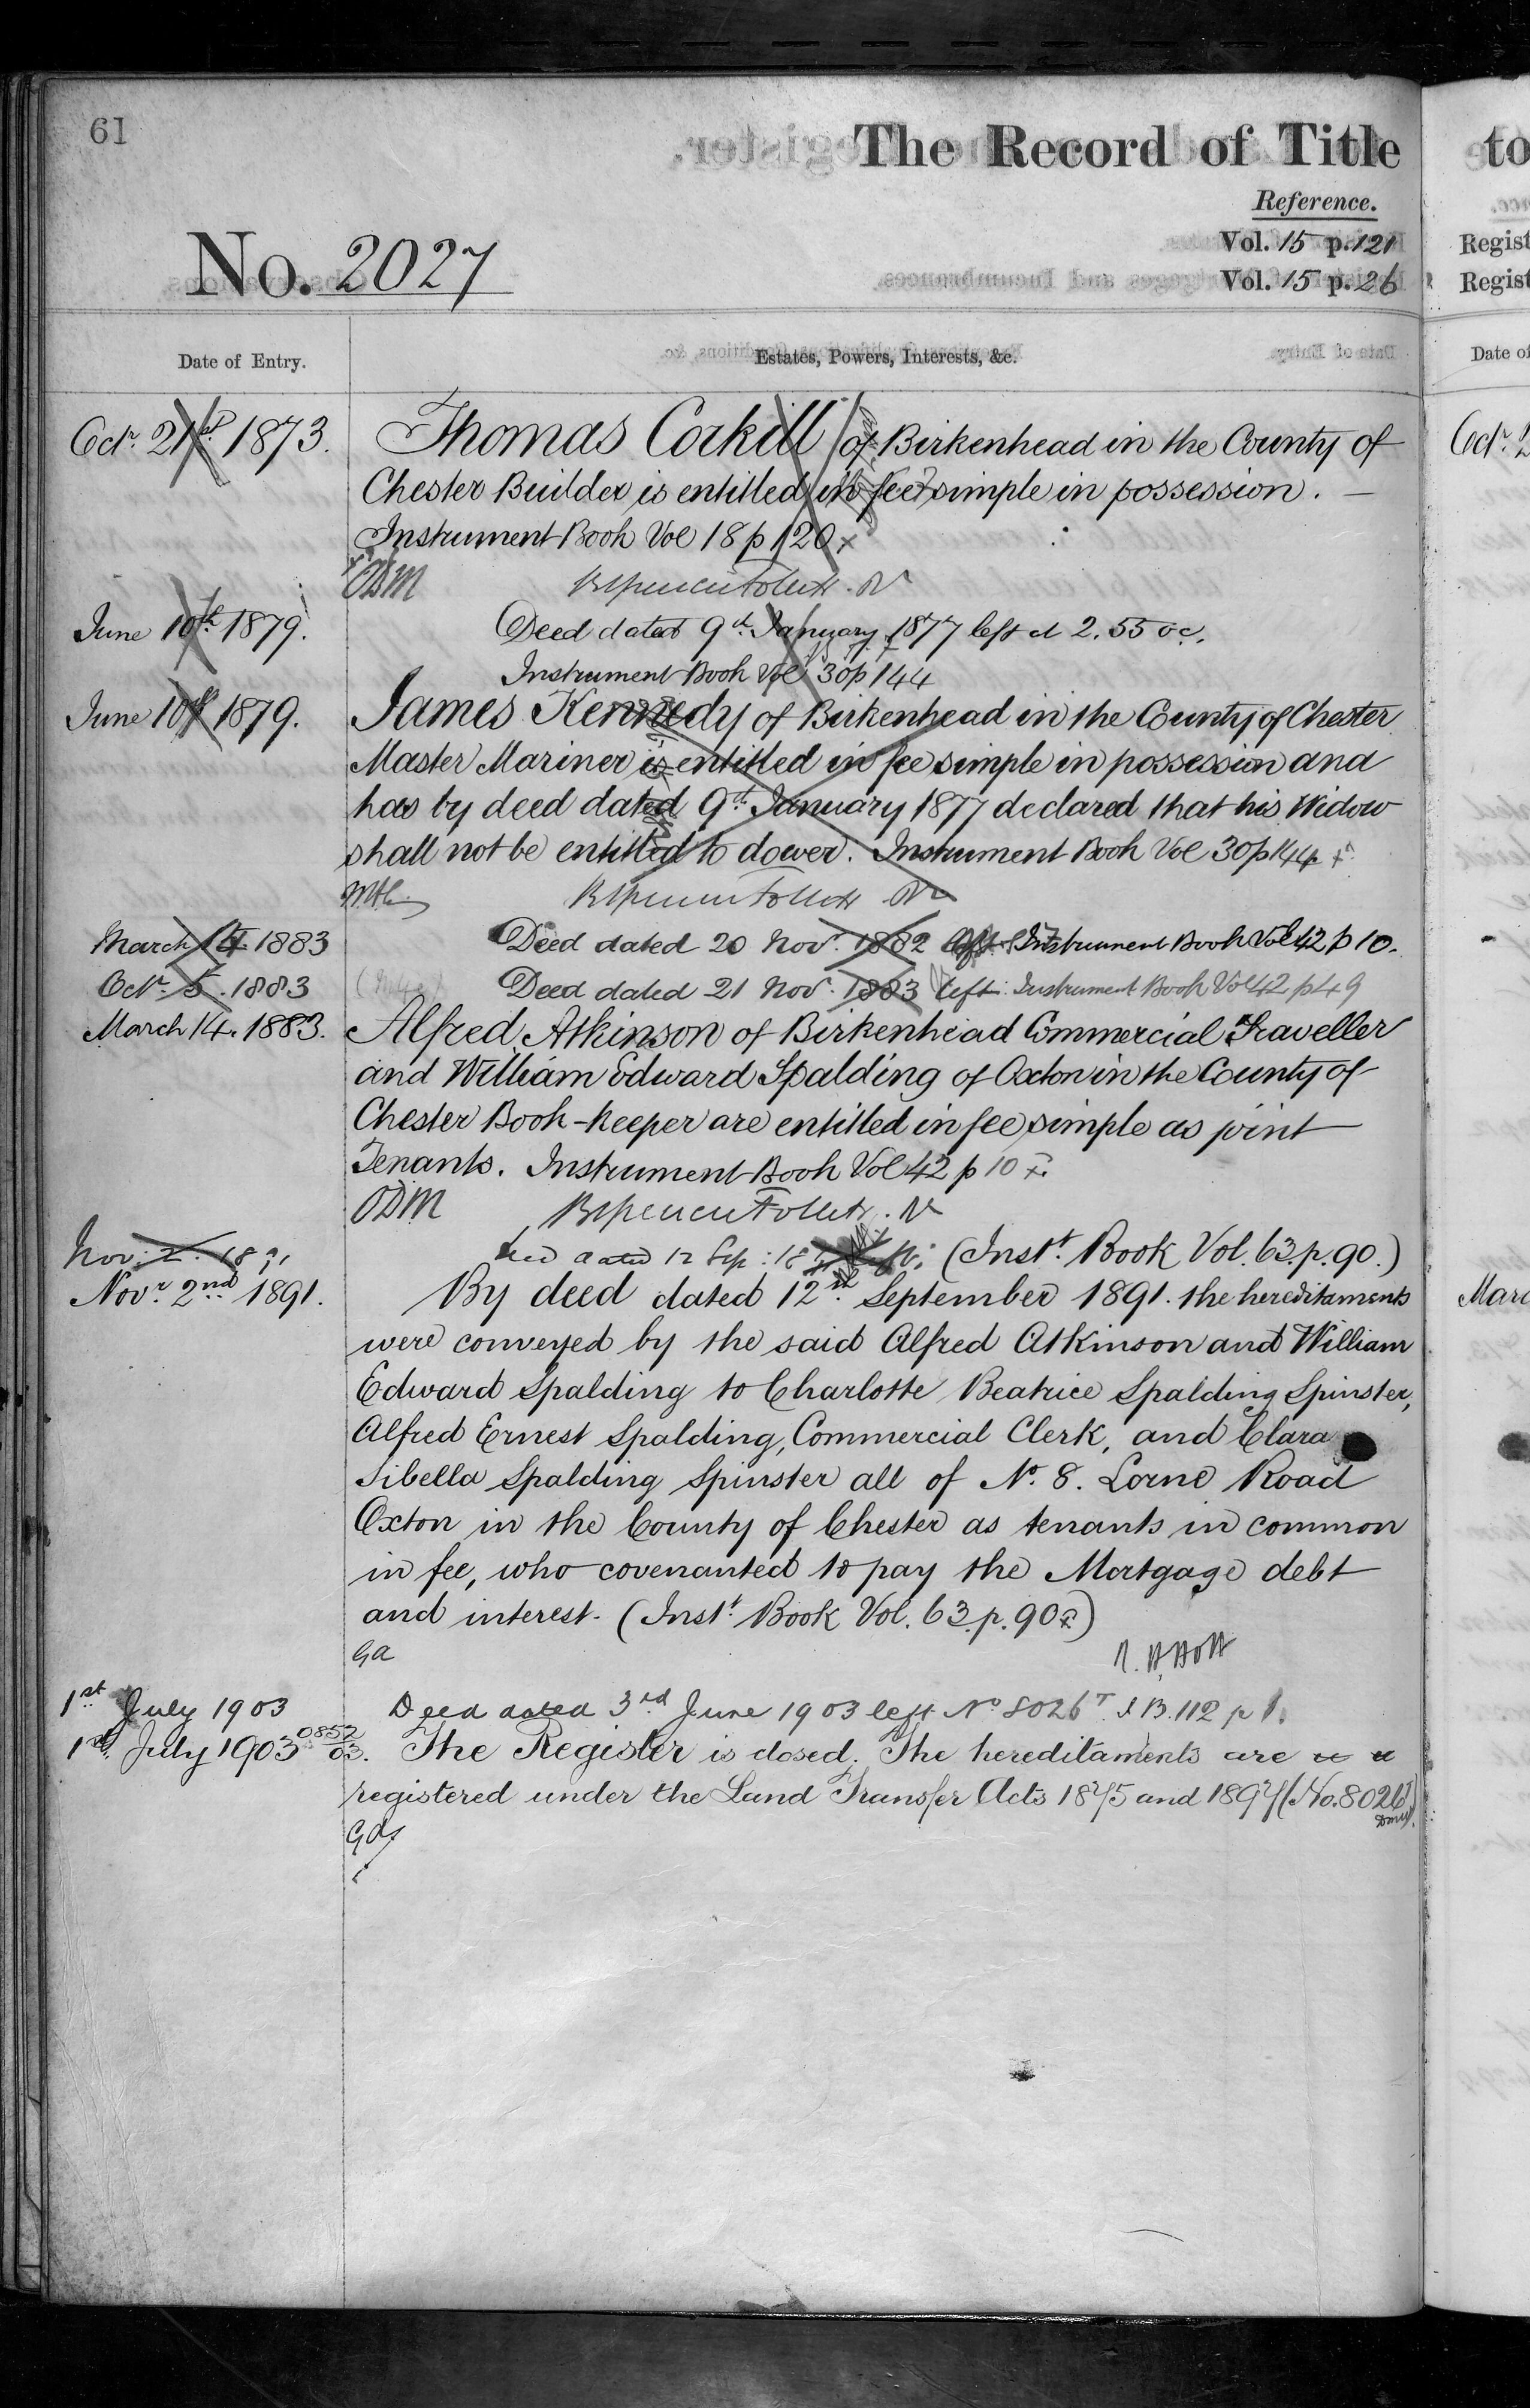 61
The Record of Title
Reference.
No. 2027
Vol. 15 p. 121
Vol. 15 p. 26
Date of Entry.
Estates, Powers, Interests, &c.
Octr. 21st 1873.
Thomas Corkill of Birkenhead in the County of
Chester Builder is entitled in fee simple in possession. —
Instrument Book Vol 18 p 120
ODM
June 10th 1879.
Deed dated 9th January 1877 left at 2.55 oc.
Instrument Book Vol 30 p 144
June 10th 1879.
James Kennedy of Birkenhead in the County of Chester
Master Mariner is entitled in fee simple in possession and
has by deed dated 9th January 1877 declared that his Widow
shall not be entitled to dower. Instrument Book Vol 30 p 144
March 14 1883
Deed dated 20 Nov. 1882 left Instrument Book Vol 42 p 10.
Octr. 5. 1883
Deed dated 21 Nov. 1883 left Instrument Book Vol 42 p 49
March 14. 1883.
Alfred Atkinson of Birkenhead Commercial Traveller
and William Edward Spalding of Oxton in the County of
Chester Book-keeper are entitled in fee simple as joint
Tenants. Instrument Book Vol 42 p 10
ODM
Nov. 2. 1891
dated 12 Sep: (Instt. Book Vol. 63. p. 90.)
Novr. 2nd 1891.
By deed dated 12th September 1891. the hereditaments
were conveyed by the said Alfred Atkinson and William
Edward Spalding to Charlotte Beatrice Spalding Spinster,
Alfred Ernest Spalding, Commercial Clerk, and Clara
Sibella Spalding Spinster all of No. 8. Lorne Road
Oxton in the County of Chester as tenants in common
in fee, who covenanted to pay the Mortgage debt
and interest. (Instt. Book Vol. 63. p. 90)
Ga
1st July 1903
Deed dated 3rd June 1903 left No 8026T I.B. 112 p 1.
1st July 1903 0852/03.
The Register is closed. The hereditaments are
registered under the Land Transfer Acts 1875 and 1897 (No. 8026T)
to
Regist
Regist
Date of
Octr. 2
Marc